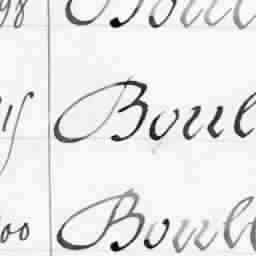 98 Boul
Boul
00 Boull